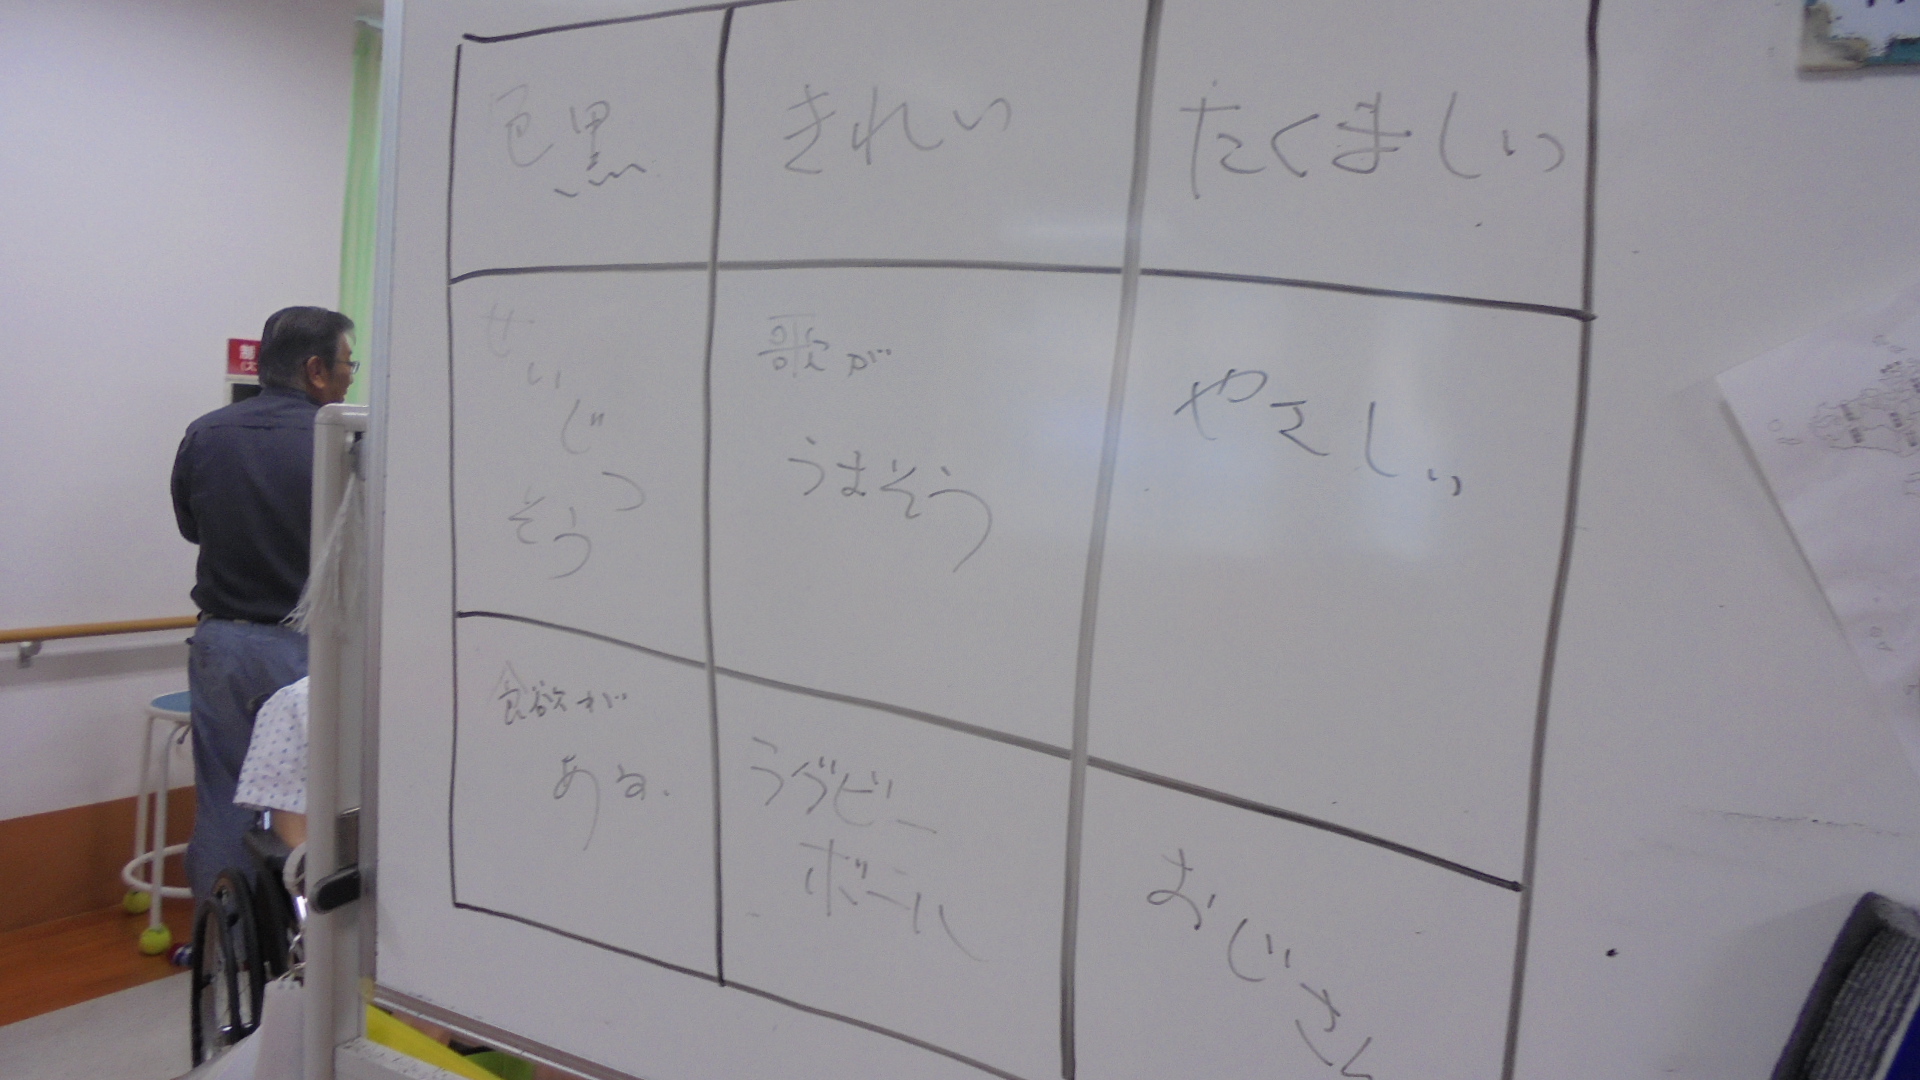 色黒
きれい
たくましい
せいじつ
そう
歌が
うまそう
やさしい
食欲が
ある.
ラグビー
ボール
おじさん